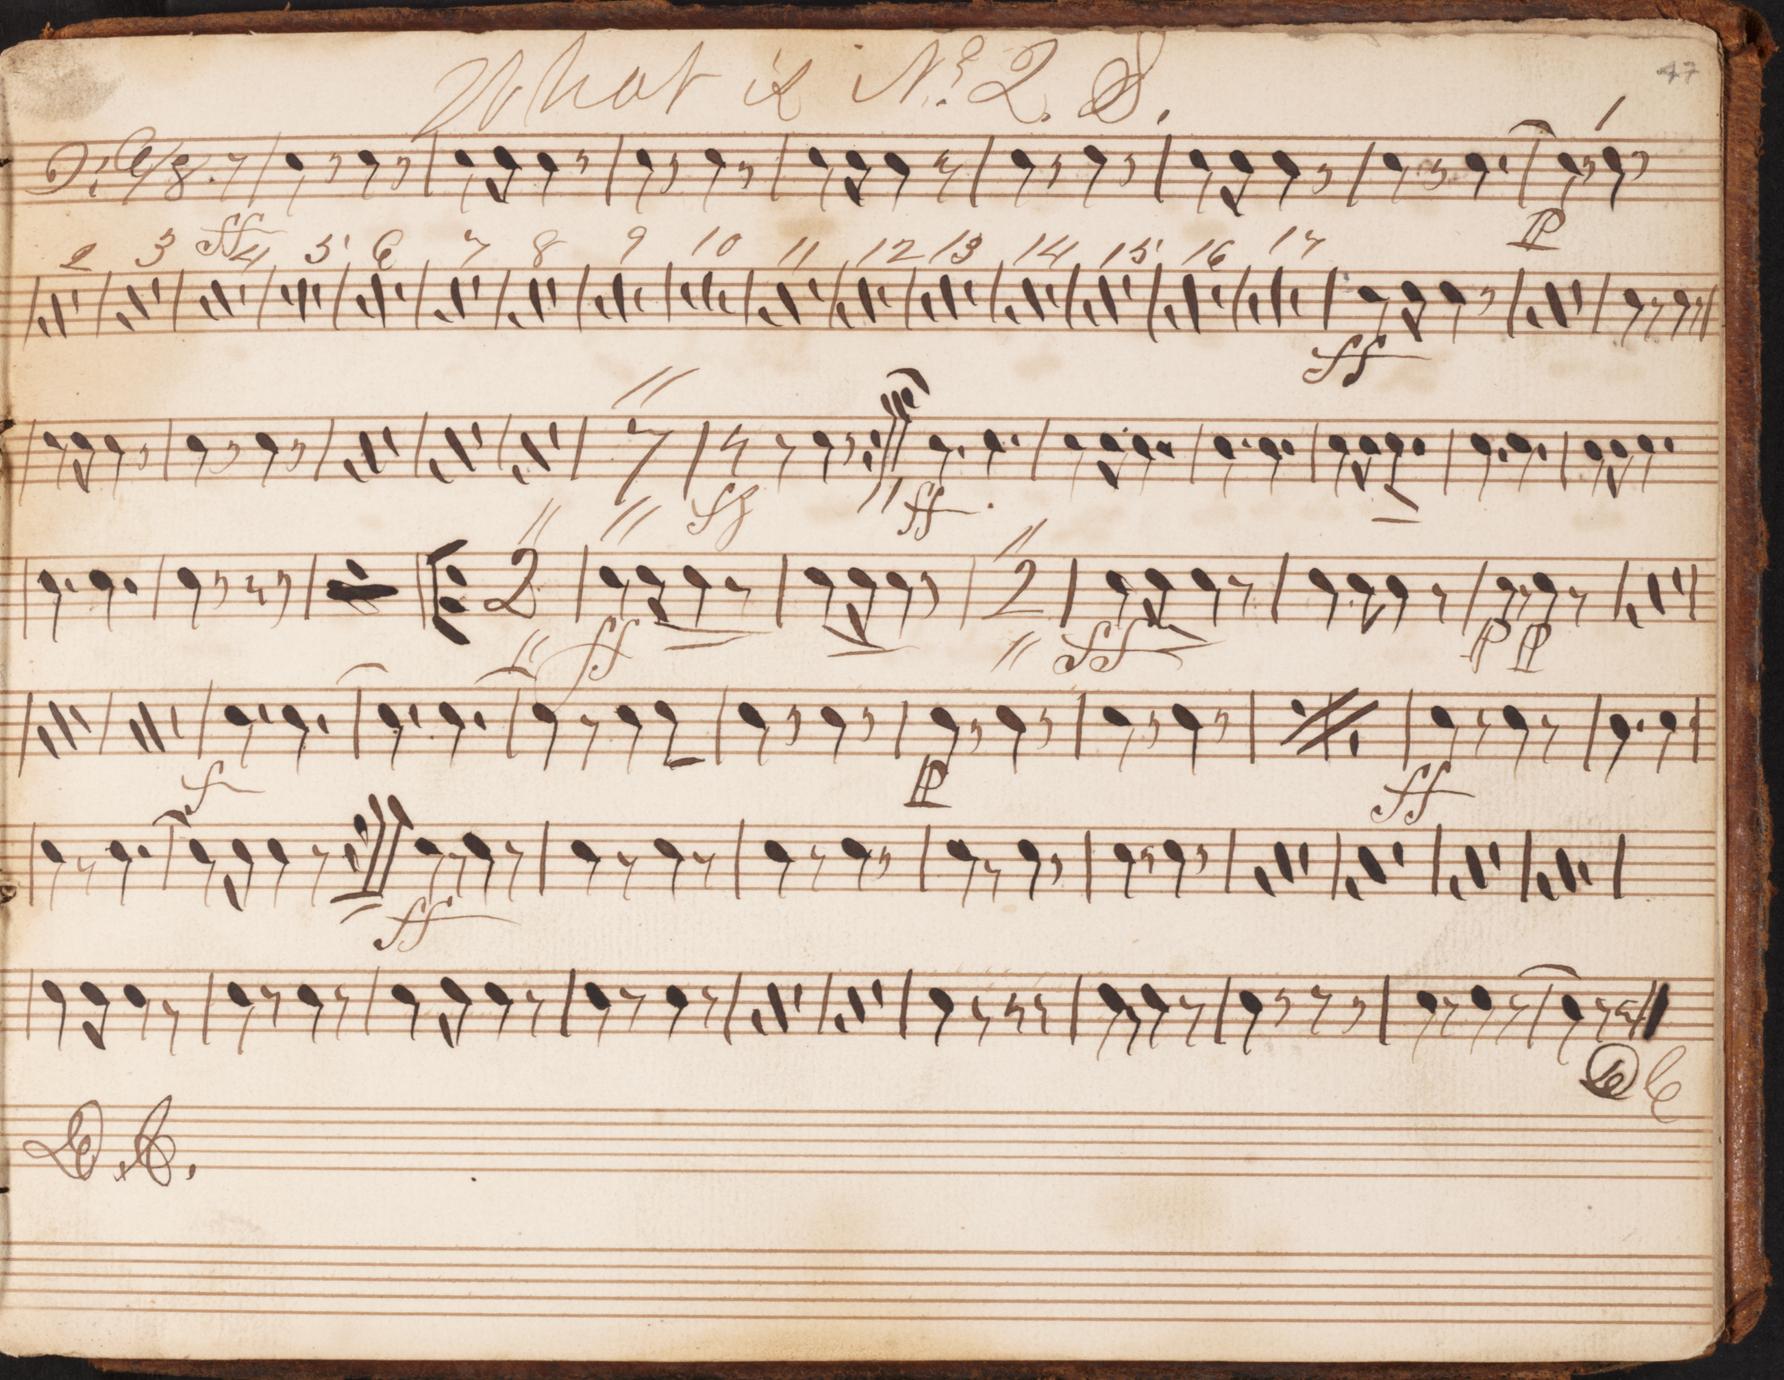 What is No. 2. D.
47
6/8.
1
ff
P
2 3 4 5 6 7 8 9 10 11 12 13 14 15 16 17
ff
fz ff
2 2
ff ff P P
f P ff
ff
D. C.